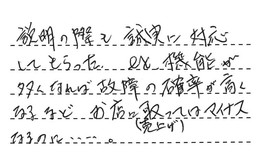 説明の際も誠実に対応
してもらった。 でも機能が
多くなれば故障の確率が高く
なるなど お店に取ってはマイナス
(売上げ)
なのに……。